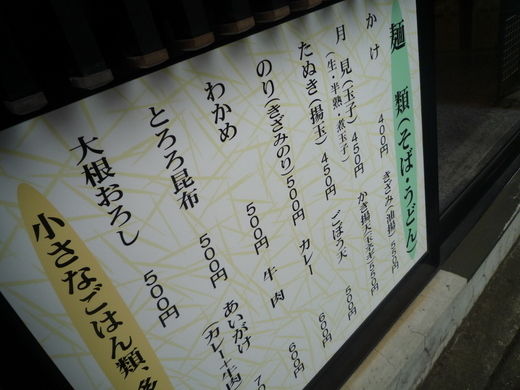 麺 類(そば・うどん)
かけ 400円
きざみ(油揚) 550円
月 見(玉子) 450円
(生・半熟・煮玉子)
かき揚天(玉ネギ) 550円
たぬき(揚玉) 450円
ごぼう天 500円
のり(きざみのり) 500円
カレー 600円
わかめ 500円
牛 肉 600円
とろろ昆布 500円
あいがけ
(カレー+牛肉)
大根おろし 500円
小さなごはん類、多